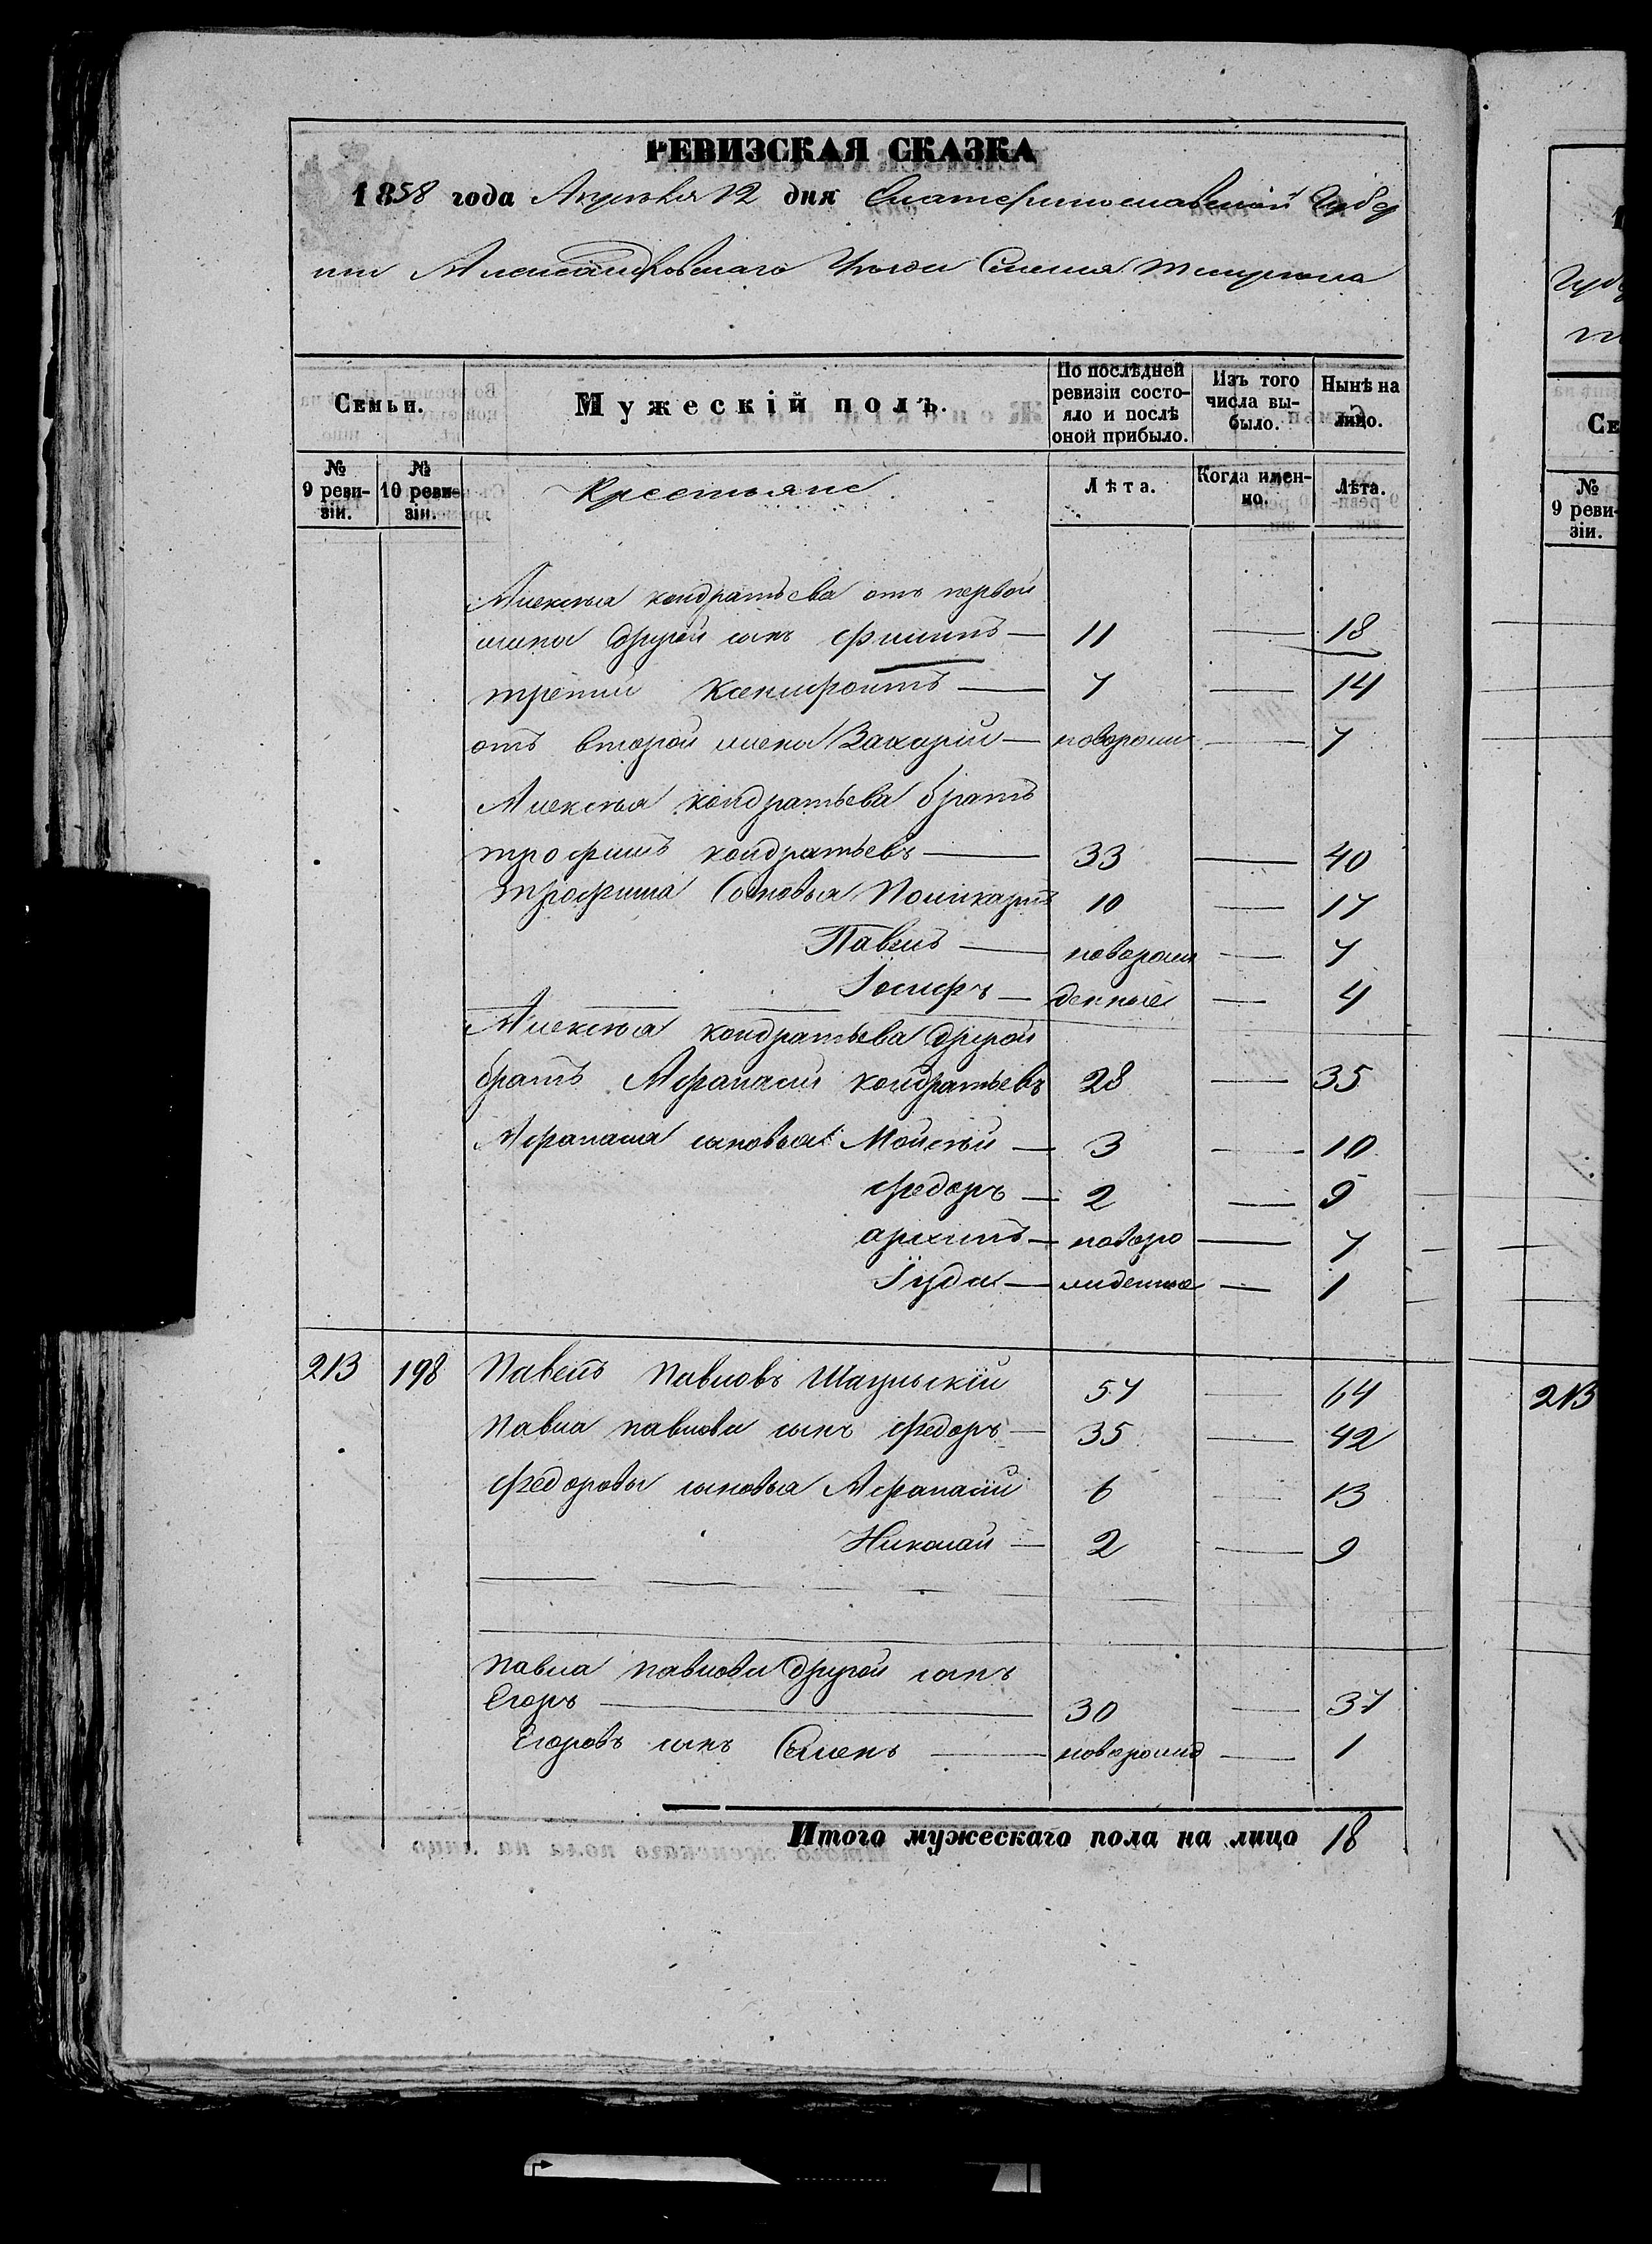 РЕВИЗСКАЯ СКАЗКА
1858 года Апреля 12 дня Екатеринославской Губер
нии Александровскаго Уезда Селения Темрюка
Семьи.
Мужескій полъ.
По послѣдней ревизіи состояло и послѣ оной прибыло.
Изъ того числа выбыло.
Нынѣ на лицо.
№ 9 ревизіи.
№ 10 ревизіи.
Крестьяне
Лѣта.
Когда именно.
Лѣта.
Алексѣя кондратьева отъ первой
жены другой сынъ филипъ — 11 — 18
третий Ксенофонтъ — 7 — 14
отъ второй жены Захарій — новорожд — 7
Алексѣя кондратьева братъ
трофимъ кондратьевъ — 33 — 40
трофима сыновья Поликарпъ 10 — 17
Павелъ — новорож — 7
Іосифъ — денные — 4
Алексѣя кондратьева другой
братъ Афанасий кондратьевъ 28 — 35
Афанасия сыновья Мойсѣй — 3 — 10
федоръ — 2 — 9
архипъ — новоро — 7
Іуда — жденные — 1
213 198 Павелъ Павловъ Шаульскій 57 — 64
Павла павлова сынъ федоръ — 35 — 42
федоровы сыновья Афанасій 6 — 13
Николай — 2 — 9
Павла павлова другой сынъ
Егоръ — 30 — 37
Егоровъ сынъ Семенъ — новорожд — 1
Итого мужескаго пола на лицо 18
Губ
СЕ
№ 9 ревизіи.
213